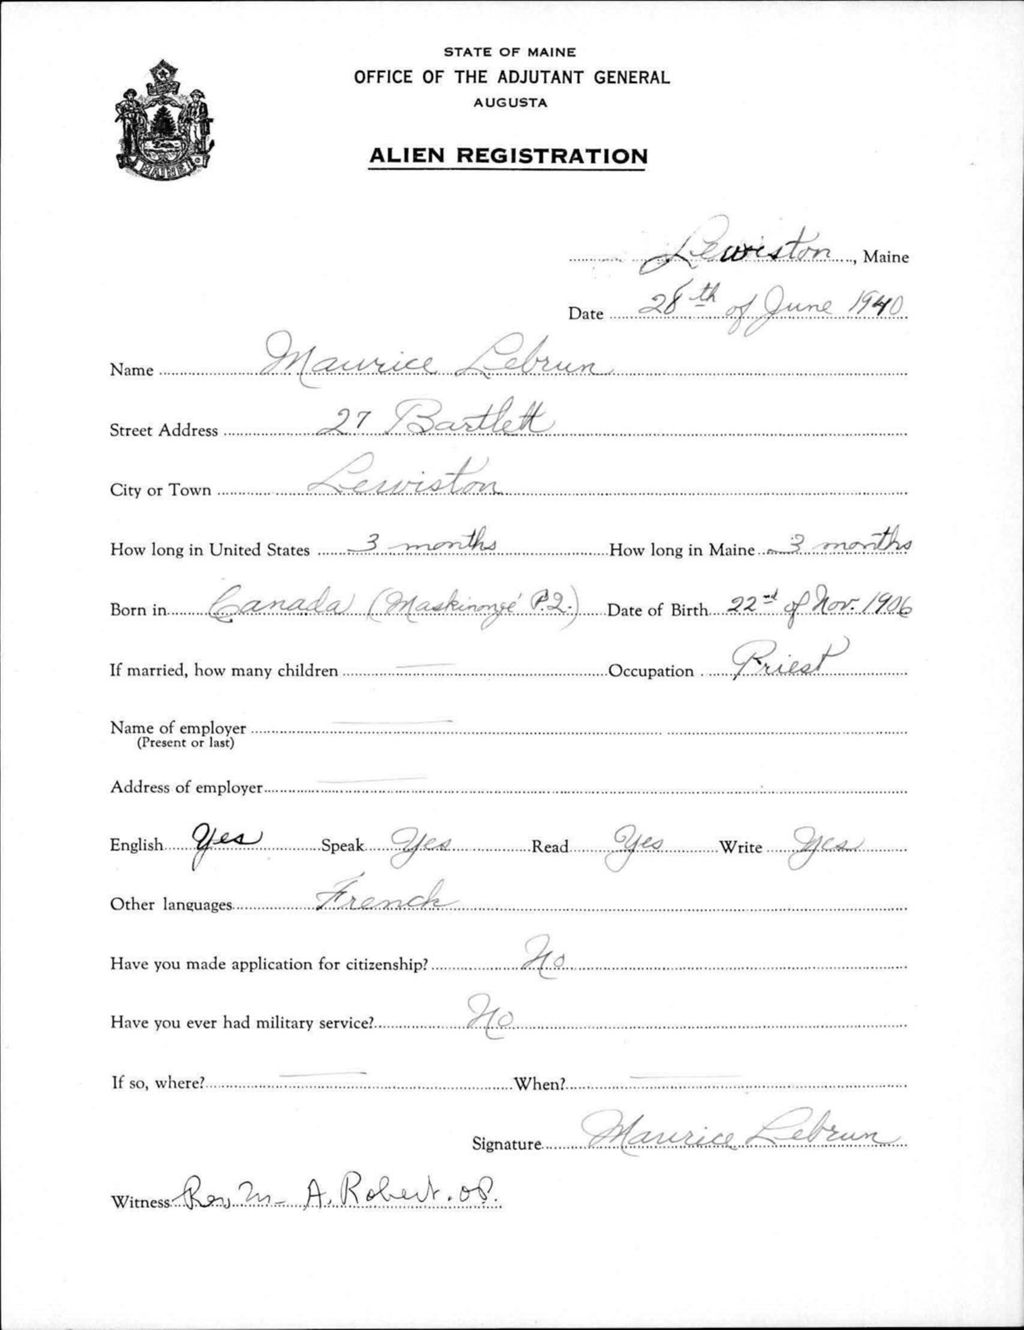 STATE OF MAINE
OFFICE OF THE ADJUTANT GENERAL
AUGUSTA
ALIEN REGISTRATION
MAINE
Lewiston, Maine
Date 28th of June 1940
Name Maurice Lebrun
Street Address 27 Bartlett
City or Town Lewiston
How long in United States 3 months How long in Maine 3 months
Born in Canada (Maskinongé P.Q.) Date of Birth 22nd of Nov. 1906
If married, how many children — Occupation Priest
Name of employer —
(Present or last)
Address of employer —
English Yes Speak Yes Read Yes Write Yes
Other languages French
Have you made application for citizenship? No
Have you ever had military service? No
If so, where? — When? —
Signature Maurice Lebrun
Witness Rev. M- A. Robert. OP.